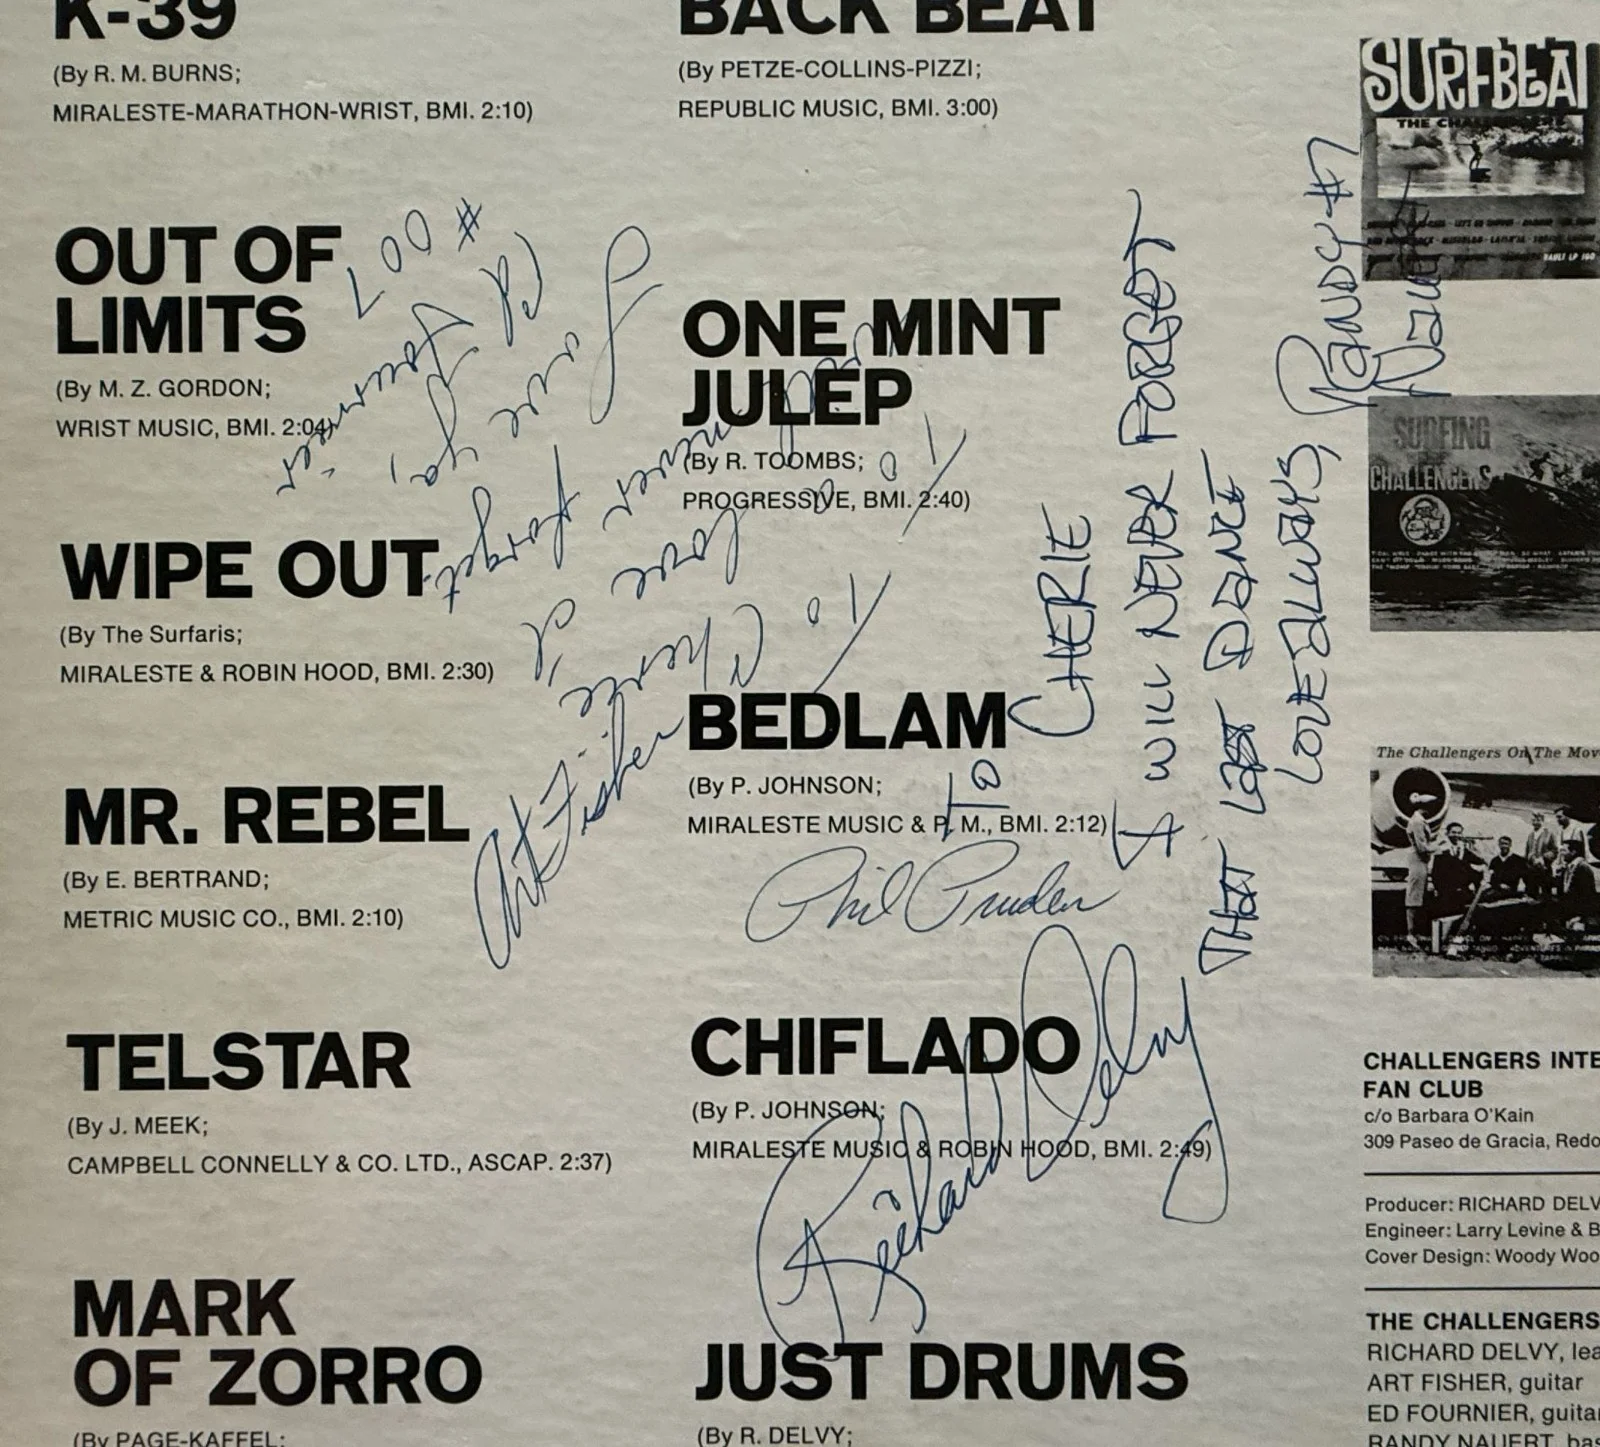 K-39
(By R. M. BURNS;
MIRALESTE-MARATHON-WRIST, BMI. 2:10)
OUT OF
LIMITS
(By M. Z. GORDON;
WRIST MUSIC, BMI. 2:04)
WIPE OUT
(By The Surfaris;
MIRALESTE & ROBIN HOOD, BMI. 2:30)
MR. REBEL
(By E. BERTRAND;
METRIC MUSIC CO., BMI. 2:10)
TELSTAR
(By J. MEEK;
CAMPBELL CONNELLY & CO. LTD., ASCAP. 2:37)
MARK
OF ZORRO
(By PAGE-KAFFEL;
BACK BEAT
(By PETZE-COLLINS-PIZZI;
REPUBLIC MUSIC, BMI. 3:00)
ONE MINT
JULEP
(By R. TOOMBS;
PROGRESSIVE, BMI. 2:40)
BEDLAM
(By P. JOHNSON;
MIRALESTE MUSIC & P. M., BMI. 2:12)
CHIFLADO
(By P. JOHNSON;
MIRALESTE MUSIC & ROBIN HOOD, BMI. 2:49)
JUST DRUMS
(By R. DELVY;
To Cherie
forget
Love ya,
Ed Fournier
#007
Art Fisher
Phil Pruden
Richard Delvy
TO CHERIE
I WILL NEVER FORGET
THAT LAST DANCE
LOVE ALWAYS,
RANDY #7
Nauert
SURFBEAT
THE CHALLENGERS
VAULT LP 100
SURFING
CHALLENGERS
The Challengers On The Mov
CHALLENGERS INTE
FAN CLUB
c/o Barbara O'Kain
309 Paseo de Gracia, Redo
Producer: RICHARD DELV
Engineer: Larry Levine & B
Cover Design: Woody Woo
THE CHALLENGERS
RICHARD DELVY, lea
ART FISHER, guitar
ED FOURNIER, guitar
RANDY NAUERT, bas